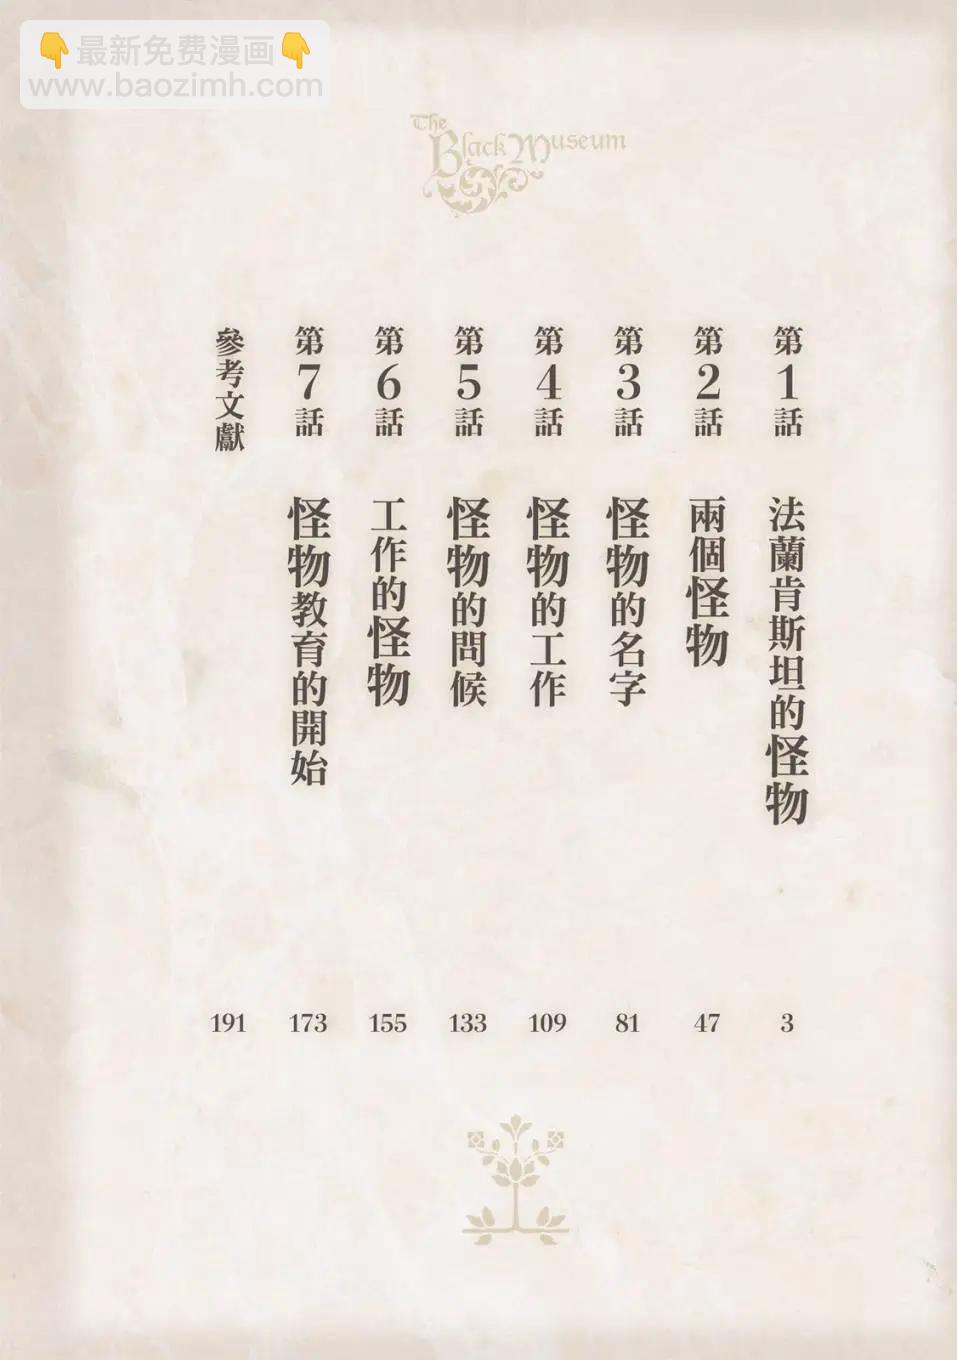 👇最新免费漫画👇
www.baozimh.com
The
Black Museum
第1話 法蘭肯斯坦的怪物 3
第2話 兩個怪物 47
第3話 怪物的名字 81
第4話 怪物的工作 109
第5話 怪物的問候 133
第6話 工作的怪物 155
第7話 怪物教育的開始 173
參考文獻 191